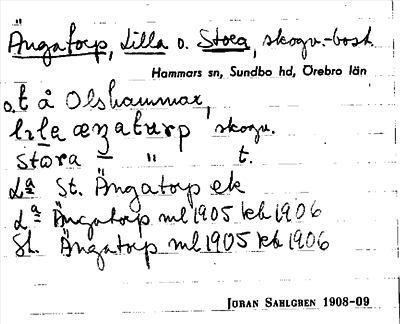 Ängatorp, Lilla o. Stora, skogv.-bost.
Hammars sn, Sundbo hd, Örebro län
o.t å Olshammar,
lıla æŋatʊrp skogv.
stora — " t.
La St. Ängatorp ek
La Ängatorp ml 1905 kb 1906
St. Ängatorp ml 1905 kb 1906
JÖRAN SAHLGREN 1908-09